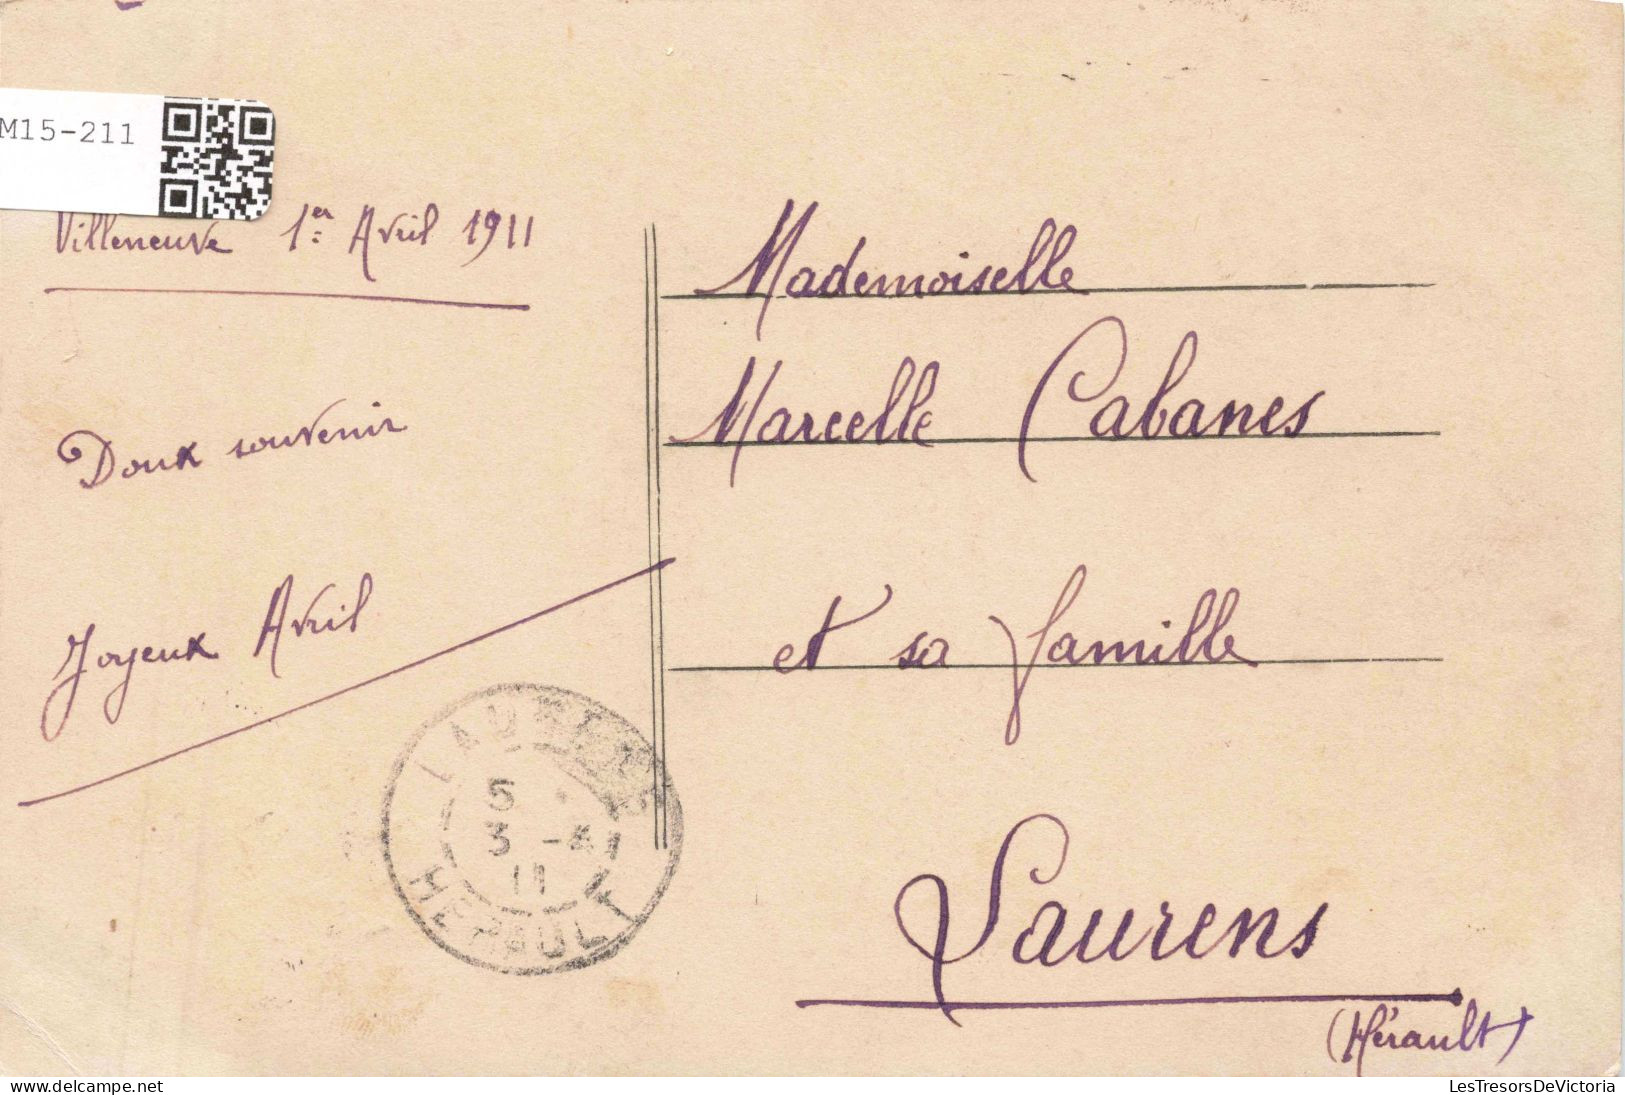 M15-211
Villeneuve 1er Avril 1911
Doux souvenir
Joyeux Avril
Mademoiselle
Marcelle Cabanes
et sa famille
Laurens
(Hérault)
LAURENS
5
3 -4
11
HERAULT
delcampe.net
LesTresorsDeVictoria